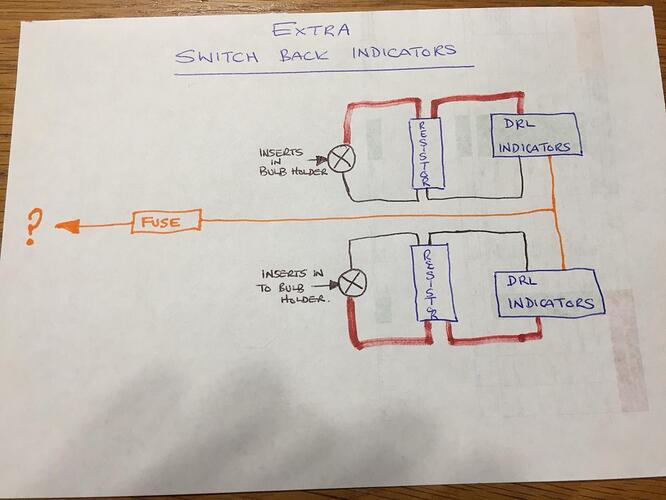 EXTRA
SWITCH BACK INDICATORS
INSERTS
IN
BULB HOLDER
RESISTOR
DRL
INDICATORS
?
FUSE
INSERTS IN
TO BULB
HOLDER.
RESISTOR
DRL
INDICATORS